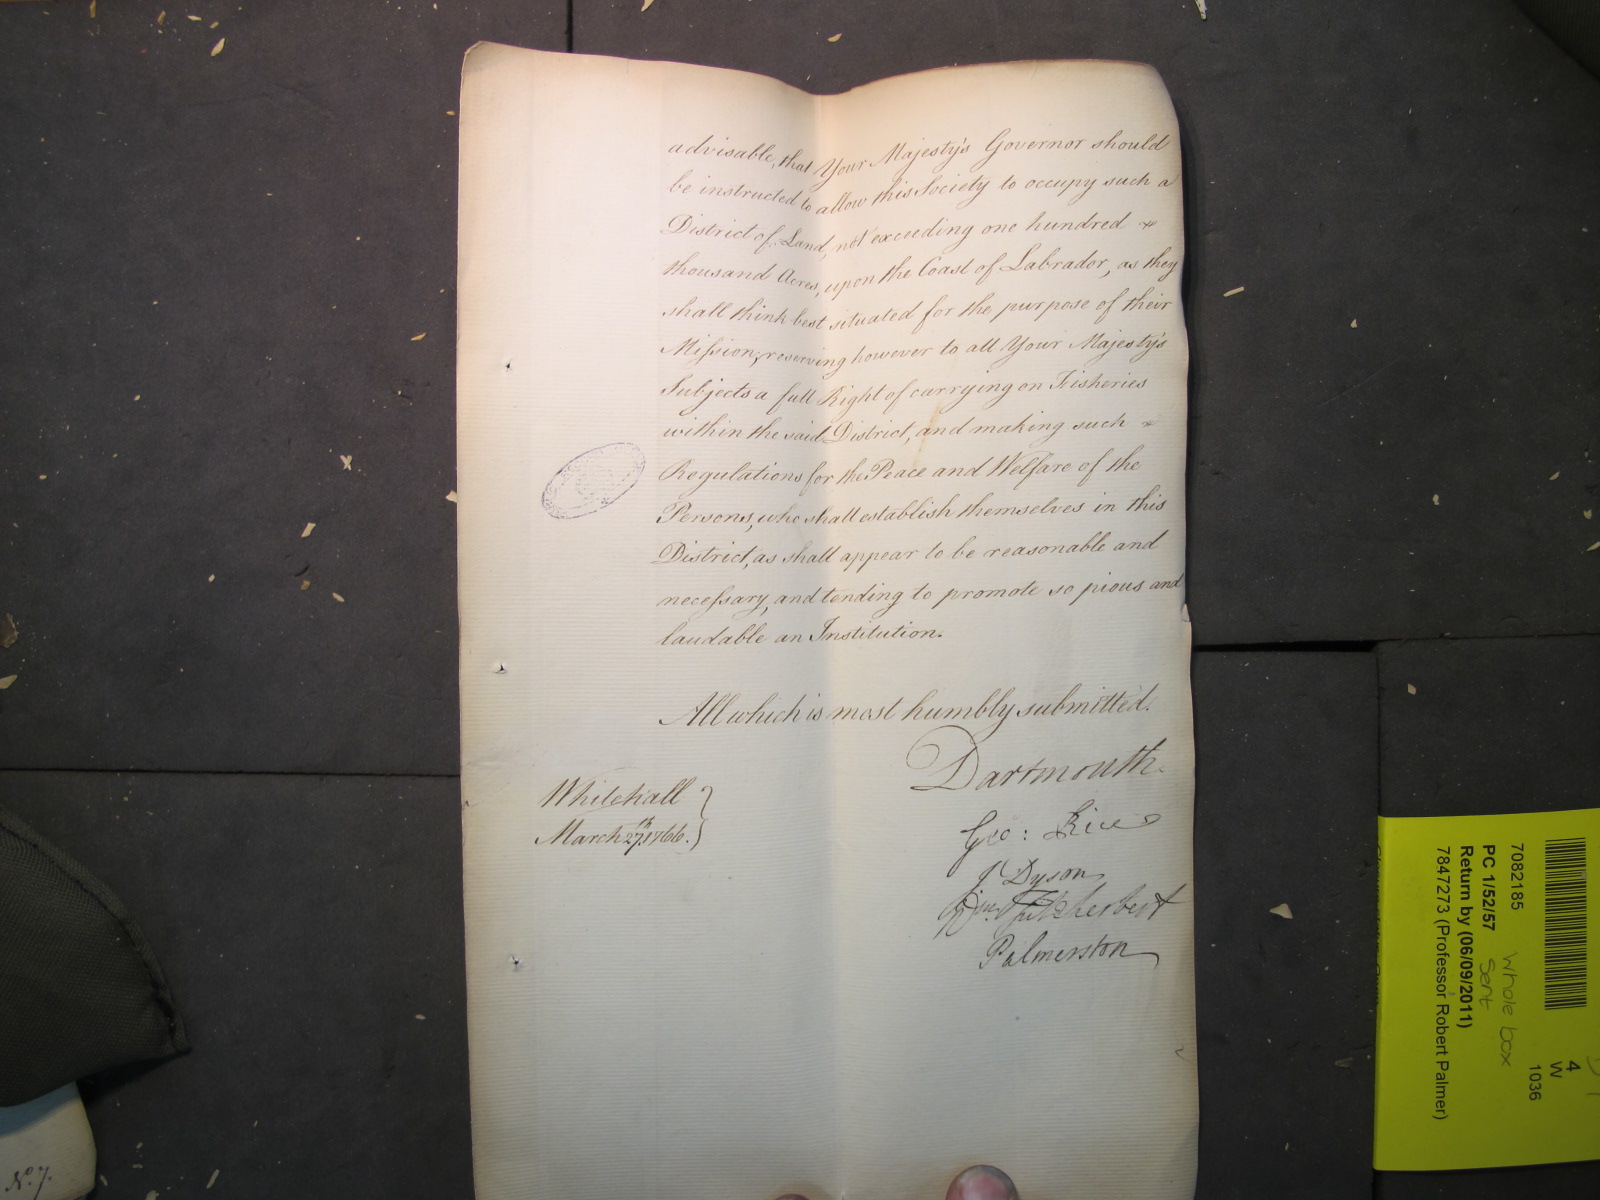 advisable, that Your Majesty's Governor should
be instructed to allow this Society to occupy such a
District of Land, not exceeding one hundred
thousand Acres, upon the Coast of Labrador, as they
shall think best situated for the purpose of their
Mission; reserving however to all Your Majesty's
Subjects a full Right of carrying on Fisheries
within the said District, and making such
Regulations for the Peace and Welfare of the
Persons, who shall establish themselves in this
District, as shall appear to be reasonable and
necessary, and tending to promote so pious and
laudable an Institution.
All which is most humbly submitted.
Dartmouth.
Geo: Rice
J Dyson
Wm. Fitzherbert
Palmerston
Whitehall
March 27th. 1766.
No. 7.
7082185
PC 1/52/57
Return by (06/09/2011)
7847273 (Professor Robert Palmer)
Whole box
Sent
4
W
1036